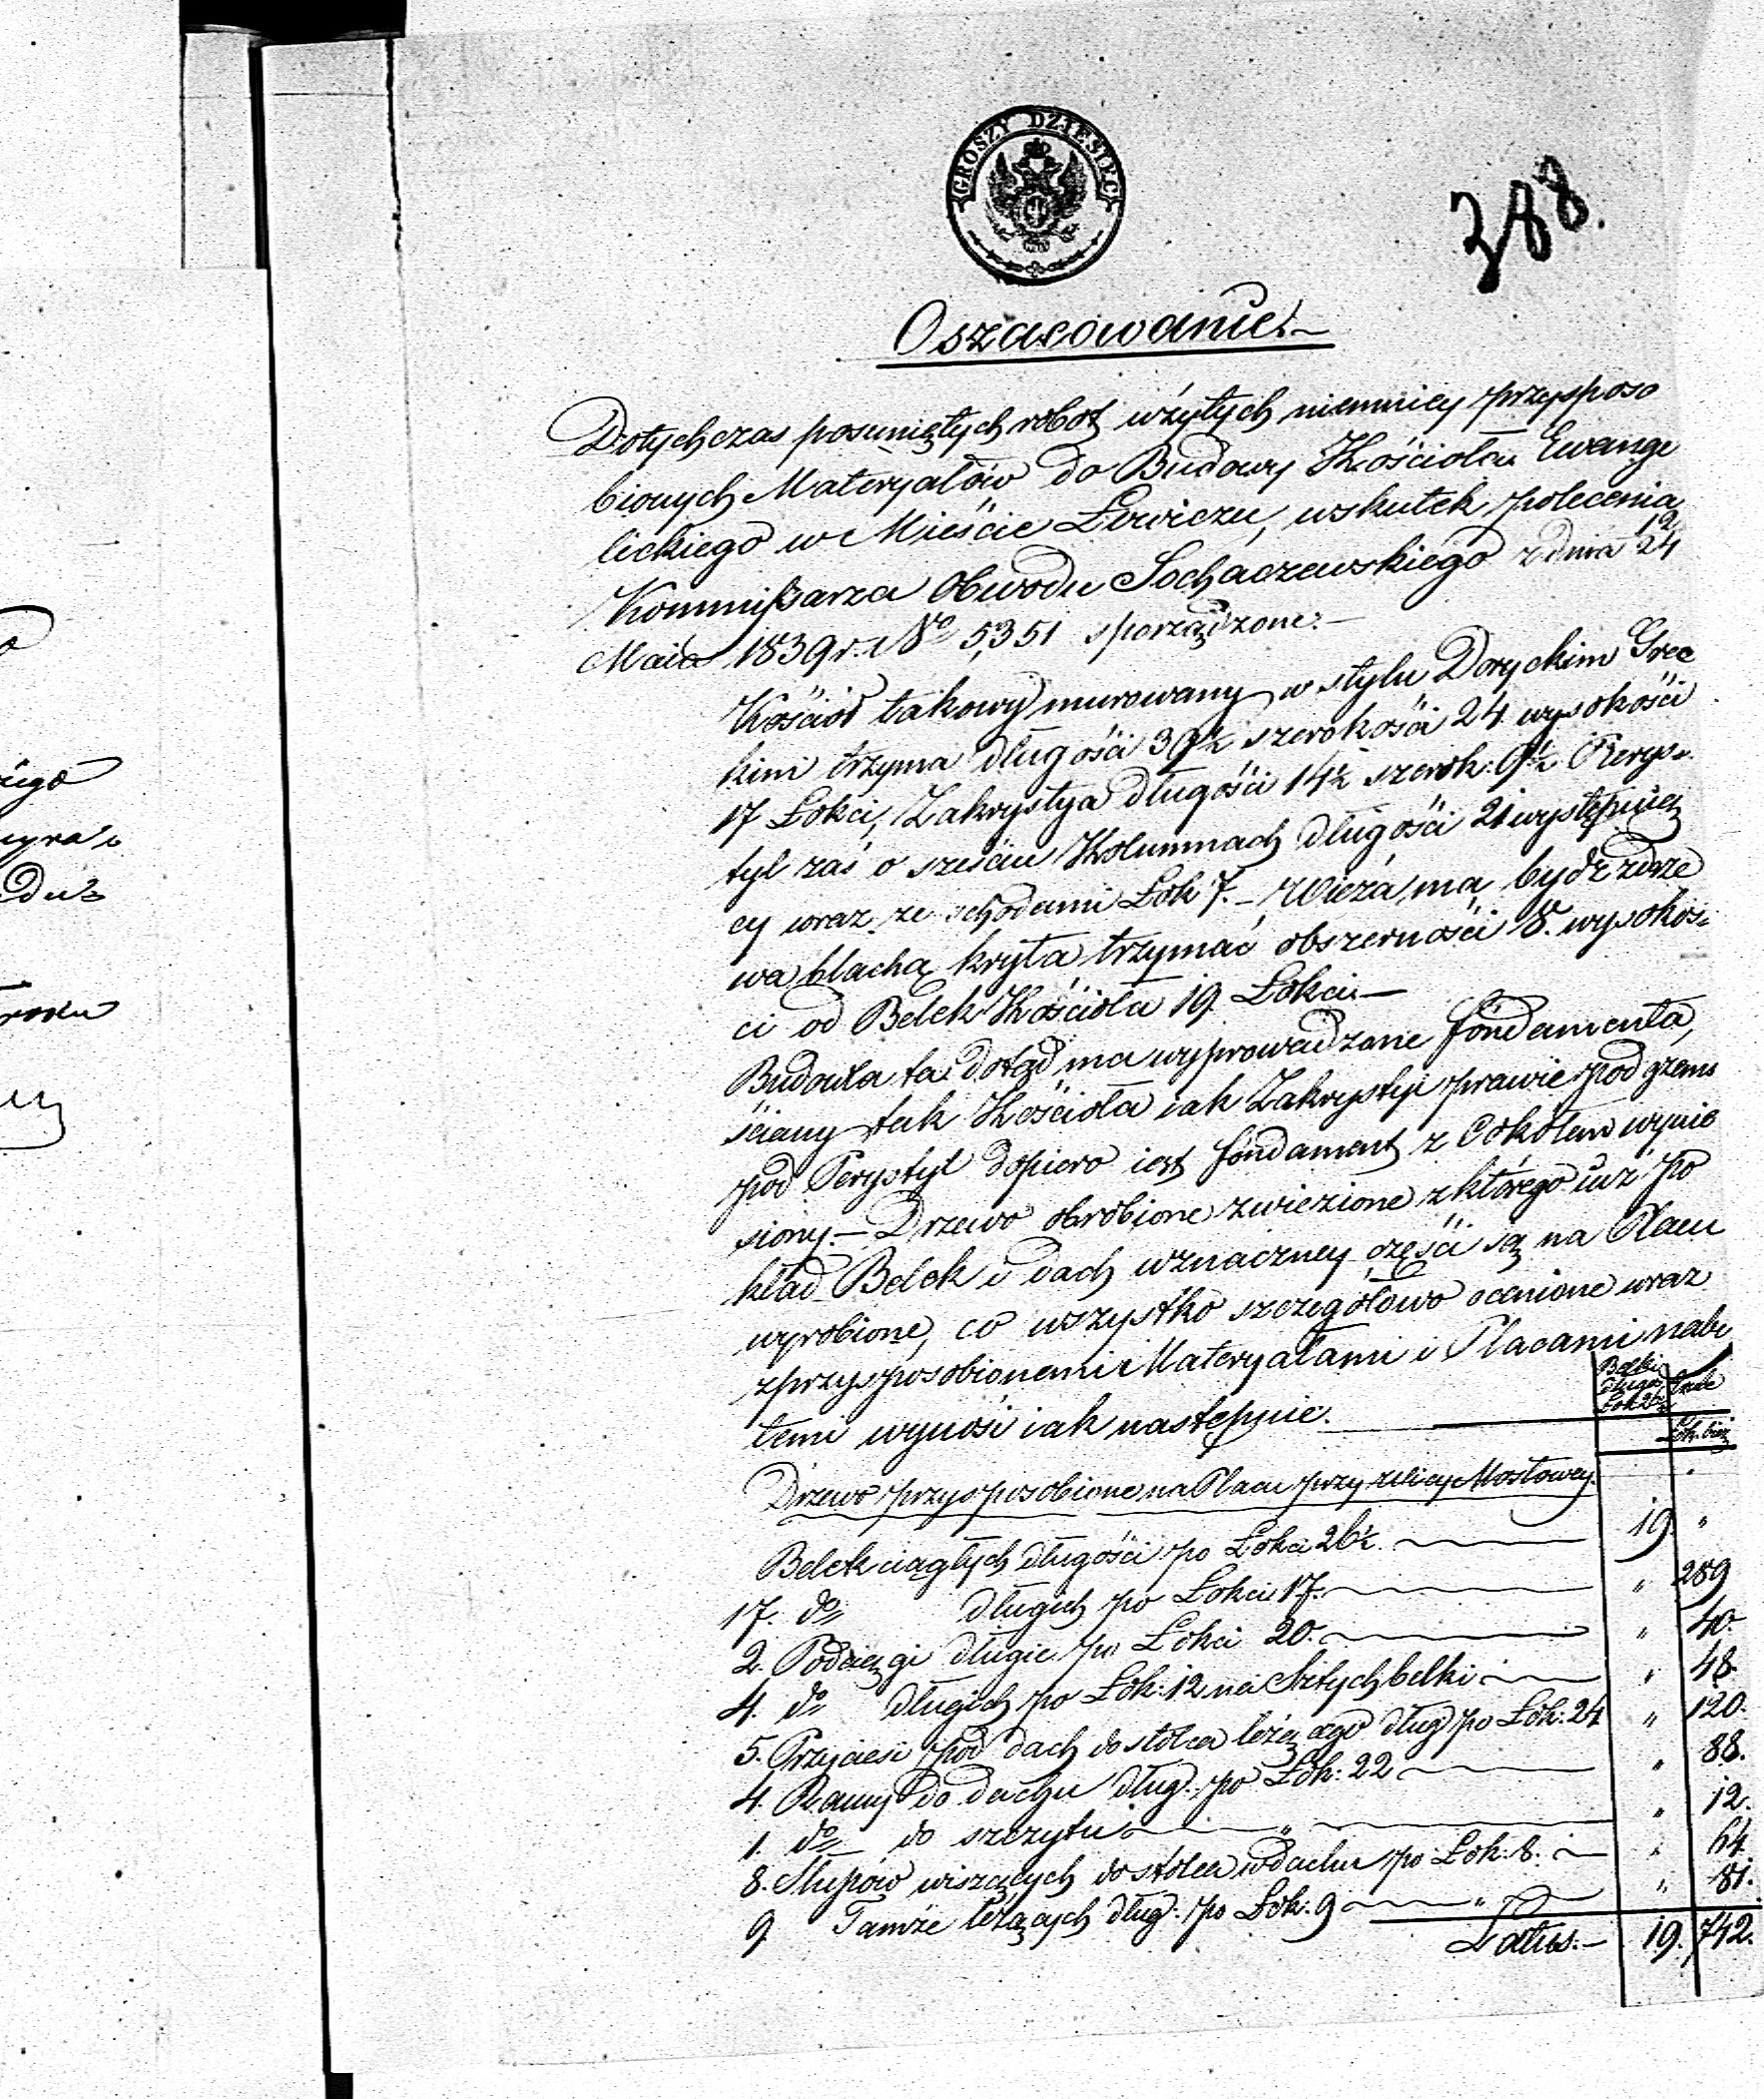 GROSZY DZIESIĘĆ
388.
Oszacowanie.
Dotychczas posuniętych robót użytych niemniey przysposo
bionych Materyałów do Budowy Kościoła Ewange
lickiego w Mieście Łowiczu, wskutek polecenia
Kommissarza Obwodu Sochaczewskiego z dnia 12/24
Maia 1839 r. No 5,351 sporządzone.
Kościół takowy murowany w stylu Doryckim Grec
kim trzyma długości 39½ szerokości 24 wysokości
17 Łokci, Zakrystya długości 14½ szerok: 9½ Perys=
tyl zaś o sześciu Kolumnach długości 21 występuią
cy wraz ze schodami Łok 7. – Wieża, ma bydź zdrze
wa blachą kryta trzymać obszerności 8. wysokoś=
ci od Belek Kościoła 19. Łokci –
Budowla ta dotąd ma wyprowadzone fondamenta,
ściany tak Kościoła iak Zakrystyi prawie pod gzems
pod Perystyl dopiero iest fondament z Cokołem wynie
siony. – Drzewo obrobione zwiezione z którego iuż po
kład Belek i dach wznaczney części są na Placu
wyrobione, co wszystko szczegółowo ocenione wraz
z przysposobionemi Materyałami i Placami naby
temi wynosi iak następuie.
Belki
długoś
Łok 26½
Łok. bież
Drzewo przysposobione na Placu przy ulicy Mostowey.
Belek ciągłych długości po Łokci 26½ 19 "
17. do długich po Łokci 17. " 289
2. Podciągi długie po Łokci 20. " 40.
4. do długich po Łok: 12 na Sztychbelki " 48.
5. Przycieśi pod dach do stolca leżącego dług po Łok: 24 " 120.
4. Ramy do dachu dług. po Łok: 22 " 88.
1. do do szczytu " " 12.
8. Słupów wiszących do stolca w dachu po Łok: 8. " 64.
9 Tamże leżących dług. po Łok. 9 " " 81.
Latus. – 19. 742.